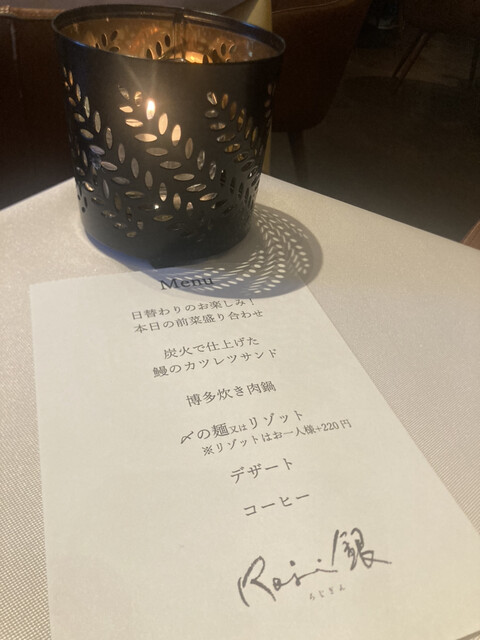 Menu
日替わりのお楽しみ！
本日の前菜盛り合わせ
炭火で仕上げた
鰻のカツレツサンド
博多炊き肉鍋
〆の麺又はリゾット
※リゾットはお一人様+220円
デザート
コーヒー
Rosi銀
ろじぎん